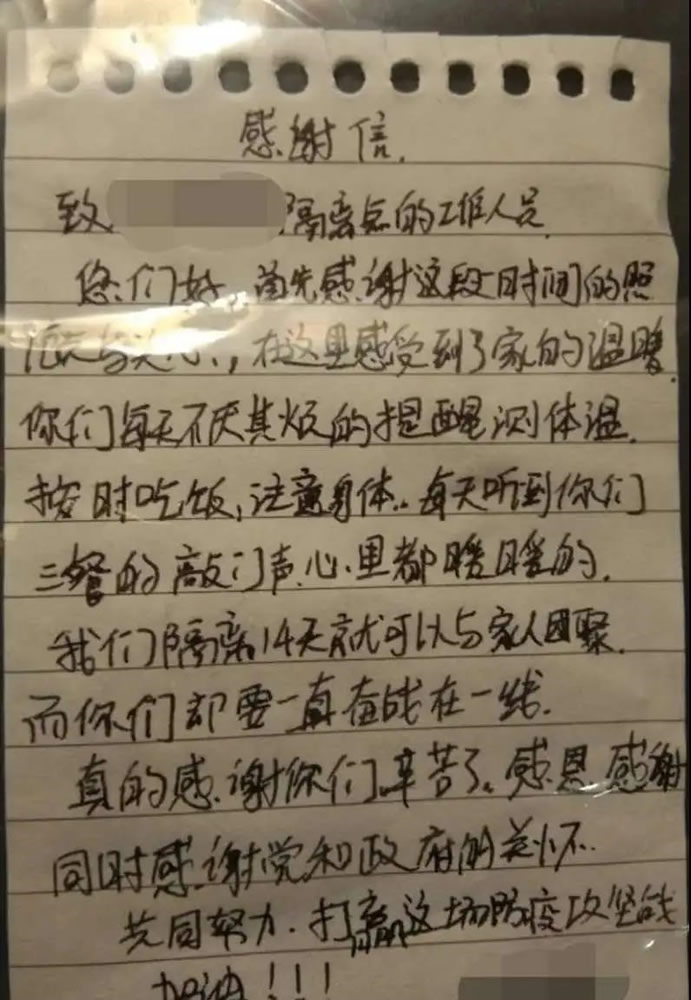 感谢信.
致 隔离点的工作人员.
您们好,首先感谢这段时间的照
顾与关心,在这里感受到了家的温暖.
你们每天不厌其烦的提醒测体温.
按时吃饭,注意身体..每天听到你们
三餐的敲门声.心里都暖暖的.
我们隔离14天就可以与家人团聚.
而你们却要一直奋战在一线.
真的感谢你们.辛苦了.感恩.感谢
同时感谢党和政府的关怀.
共同努力.打赢这场防疫攻坚战
加油!!!